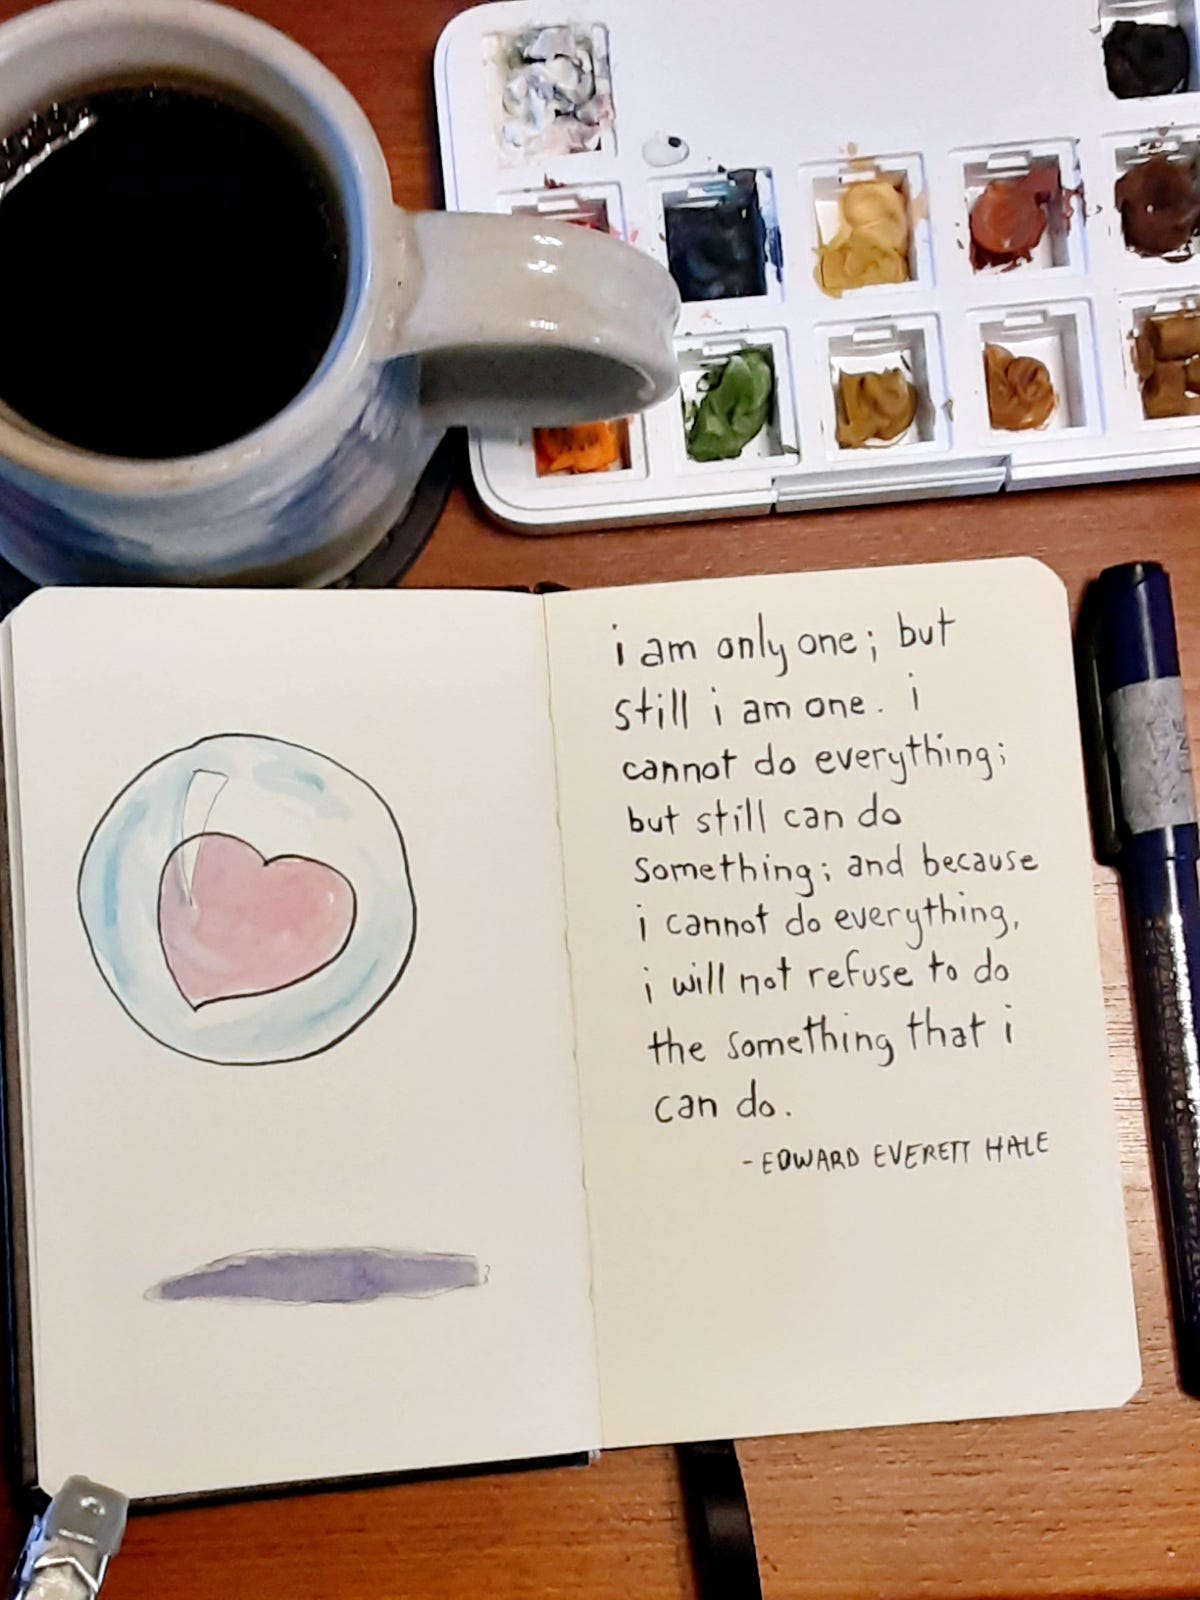 i am only one; but
still i am one. i
cannot do everything;
but still can do
something; and because
i cannot do everything,
i will not refuse to do
the something that i
can do.
- EDWARD EVERETT HALE